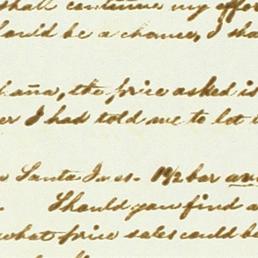 shall continue my effor
ould be a chance, I sha
aña, the price asked is
er I had told me to let
Santa Ines. 19½ bar an
Should you find a
what price sales could be